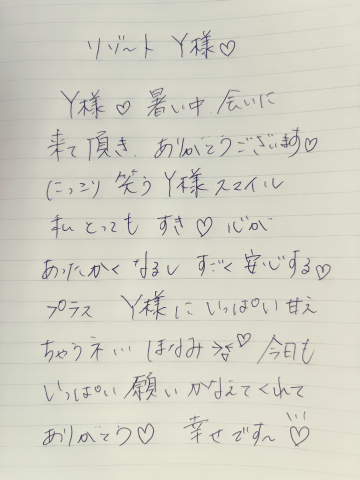 リゾート Y様♡
Y様♡ 暑い中、会いに
来て頂き、ありがとうございます♡
にっこり 笑う Y様スマイル
私 とっても すき♡ 心が
あったかく なるし すごく 安心する♡
プラス Y様に いっぱい 甘え
ちゃうネ… ほなみ♡ 今日も
いっぱい 願い かなえてくれて
ありがとう♡ 幸せです〜♡